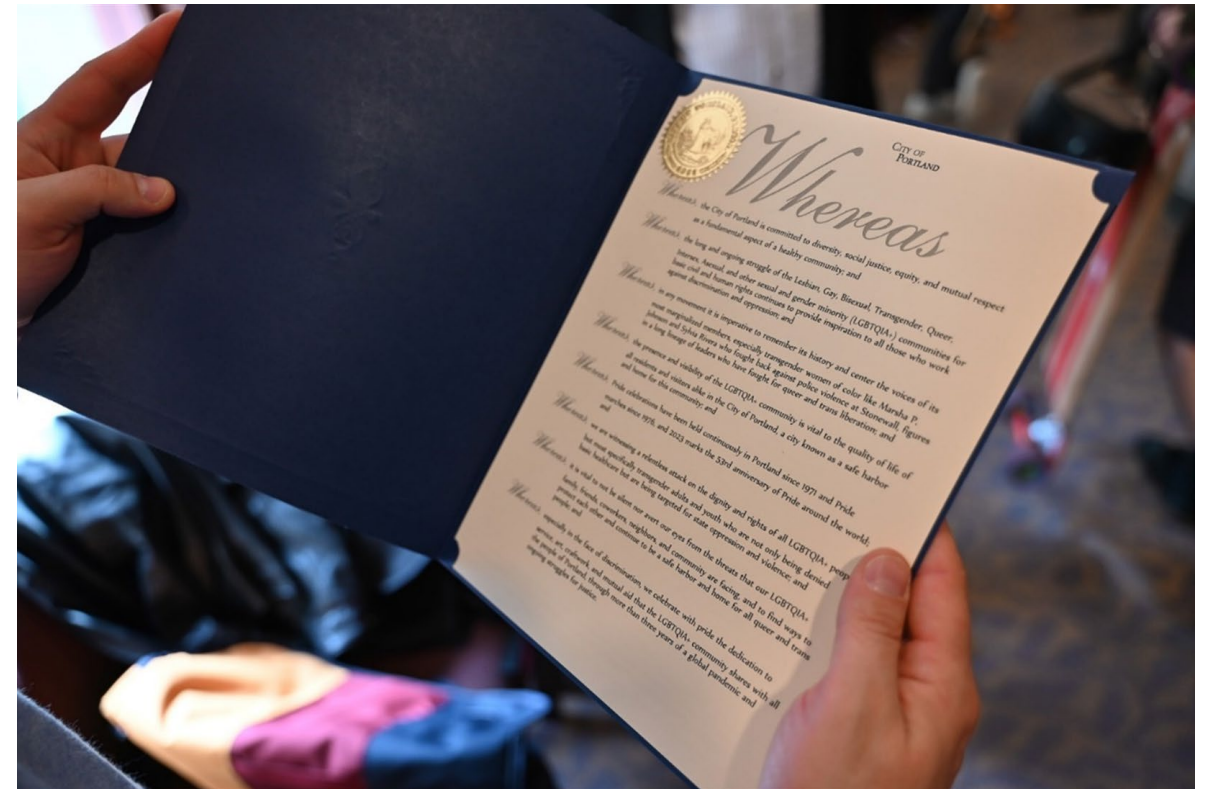 CITY OF
PORTLAND
Whereas
Whereas, the City of Portland is committed to diversity, social justice, equity, and mutual respect
as a fundamental aspect of a healthy community; and
Whereas, the long and ongoing struggle of the Lesbian, Gay, Bisexual, Transgender, Queer,
Intersex, Asexual, and other sexual and gender minority (LGBTQIA+) communities for
basic civil and human rights continues to provide inspiration to all those who work
against discrimination and oppression; and
Whereas, in any movement it is imperative to remember its history and center the voices of its
most marginalized members, especially transgender women of color like Marsha P.
Johnson and Sylvia Rivera who fought back against police violence at Stonewall, figures
in a long lineage of leaders who have fought for queer and trans liberation; and
Whereas, the presence and visibility of the LGBTQIA+ community is vital to the quality of life of
all residents and visitors alike in the City of Portland, a city known as a safe harbor
and home for this community; and
Whereas, Pride celebrations have been held continuously in Portland since 1971 and Pride
marches since 1976, and 2023 marks the 53rd anniversary of Pride around the world;
and
Whereas, we are witnessing a relentless attack on the dignity and rights of all LGBTQIA+ people
but most specifically transgender adults and youth who are not only being denied
basic healthcare but are being targeted for state oppression and violence; and
Whereas, it is vital to not be silent nor avert our eyes from the threats that our LGBTQIA+
family, friends, coworkers, neighbors, and community are facing, and to find ways to
protect each other and continue to be a safe harbor and home for all queer and trans
people; and
Whereas, especially in the face of discrimination, we celebrate with pride the dedication to
service, art, craftwork, and mutual aid that the LGBTQIA+ community shares with all
the people of Portland, through more than three years of a global pandemic and
ongoing struggles for justice.